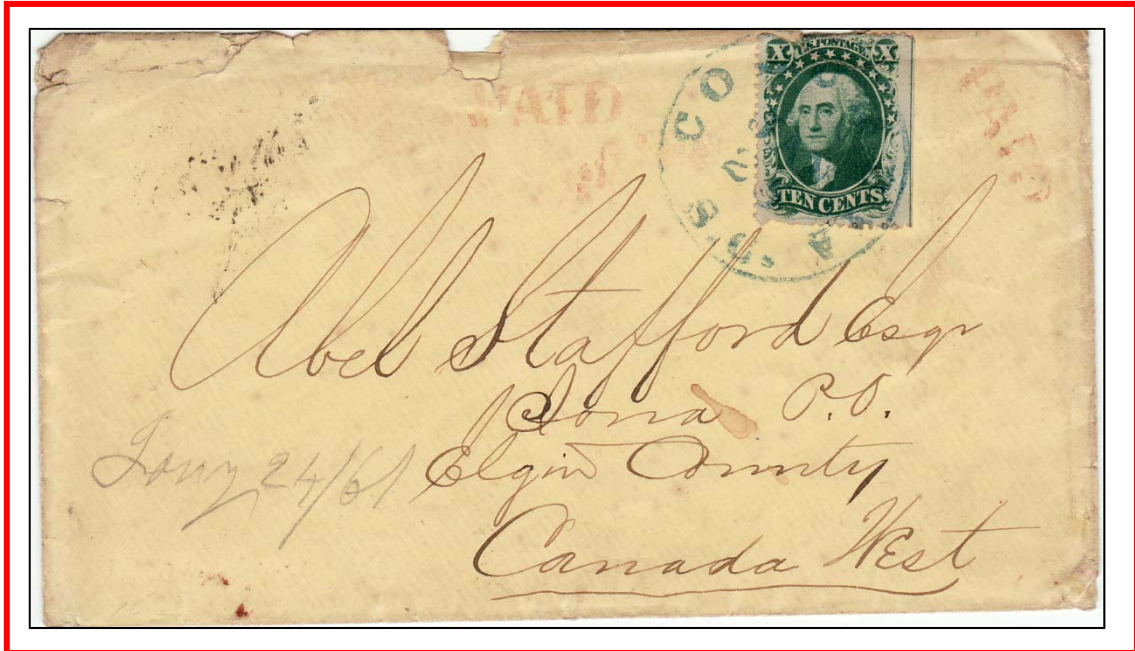 PAID
U.S. POSTAGE
X X
TEN CENTS
PAID
Abel Stafford Esqr
Iona P.O.
Elgin County
Canada West
Jany 24/61